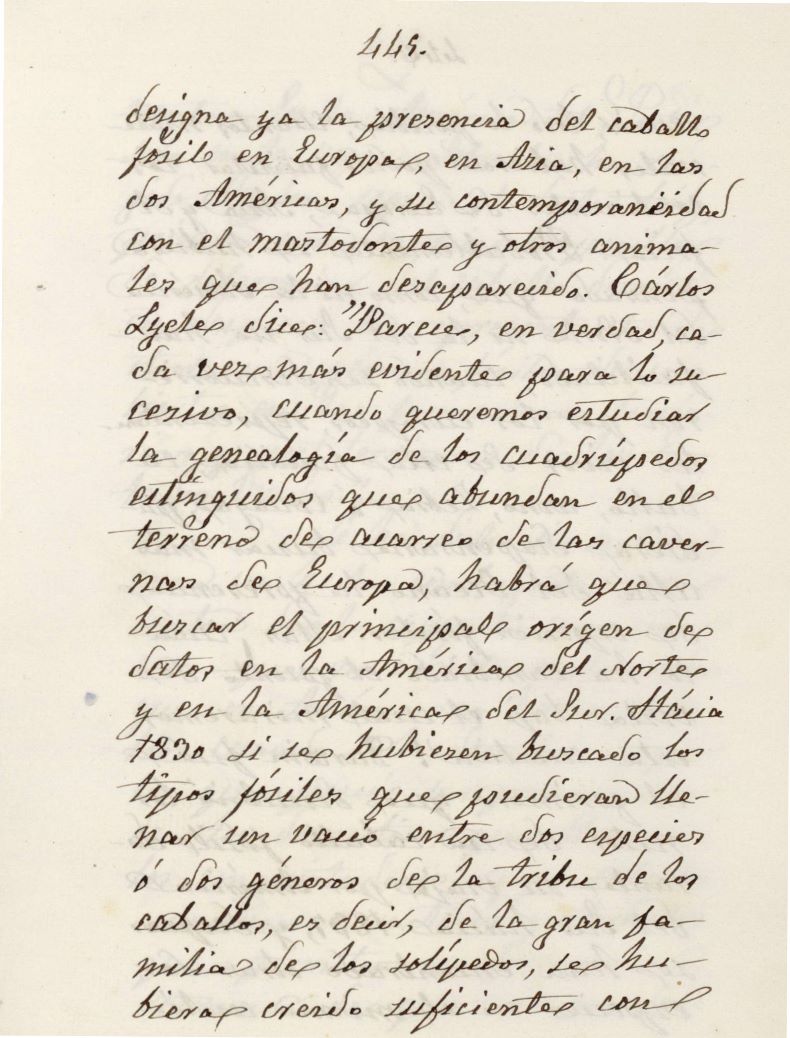 445.
designa ya la presencia del caballo
fósil en Europa, en Asia, en las
dos Américas, y su contemporaneidad
con el mastodonte y otros anima-
les que han desaparecido. Cárlos
Lyele dice: "Parece, en verdad, ca-
da vez más evidente para lo su-
cesivo, cuando queremos estudiar
la genealogía de los cuadrúpedos
estinguidos que abundan en el
terreno de acarreo de las caver-
nas de Europa, habrá que
buscar el principal orígen de
datos en la América del Norte
y en la América del Sur. Hácia
1830 si se hubiesen buscado los
tipos fósiles que pudieran lle-
nar un vacío entre dos especies
ó dos géneros de la tribu de los
caballos, es decir, de la gran fa-
milia de los solípedos, se hu-
biera creido suficiente con